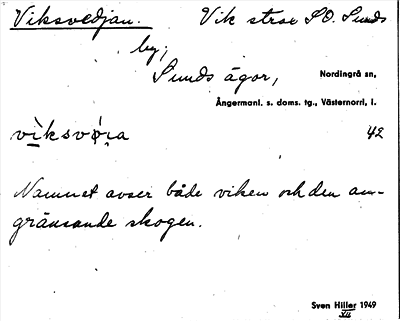 Viksvedjan. Vik strax SO. Sunds
by;
Sunds ägor, Nordingrå sn,
Ångermanl. s. doms. tg., Västernorrl. l.
42
Namnet avser både viken och den an-
gränsande skogen.
Sven Hiller 1949
VII